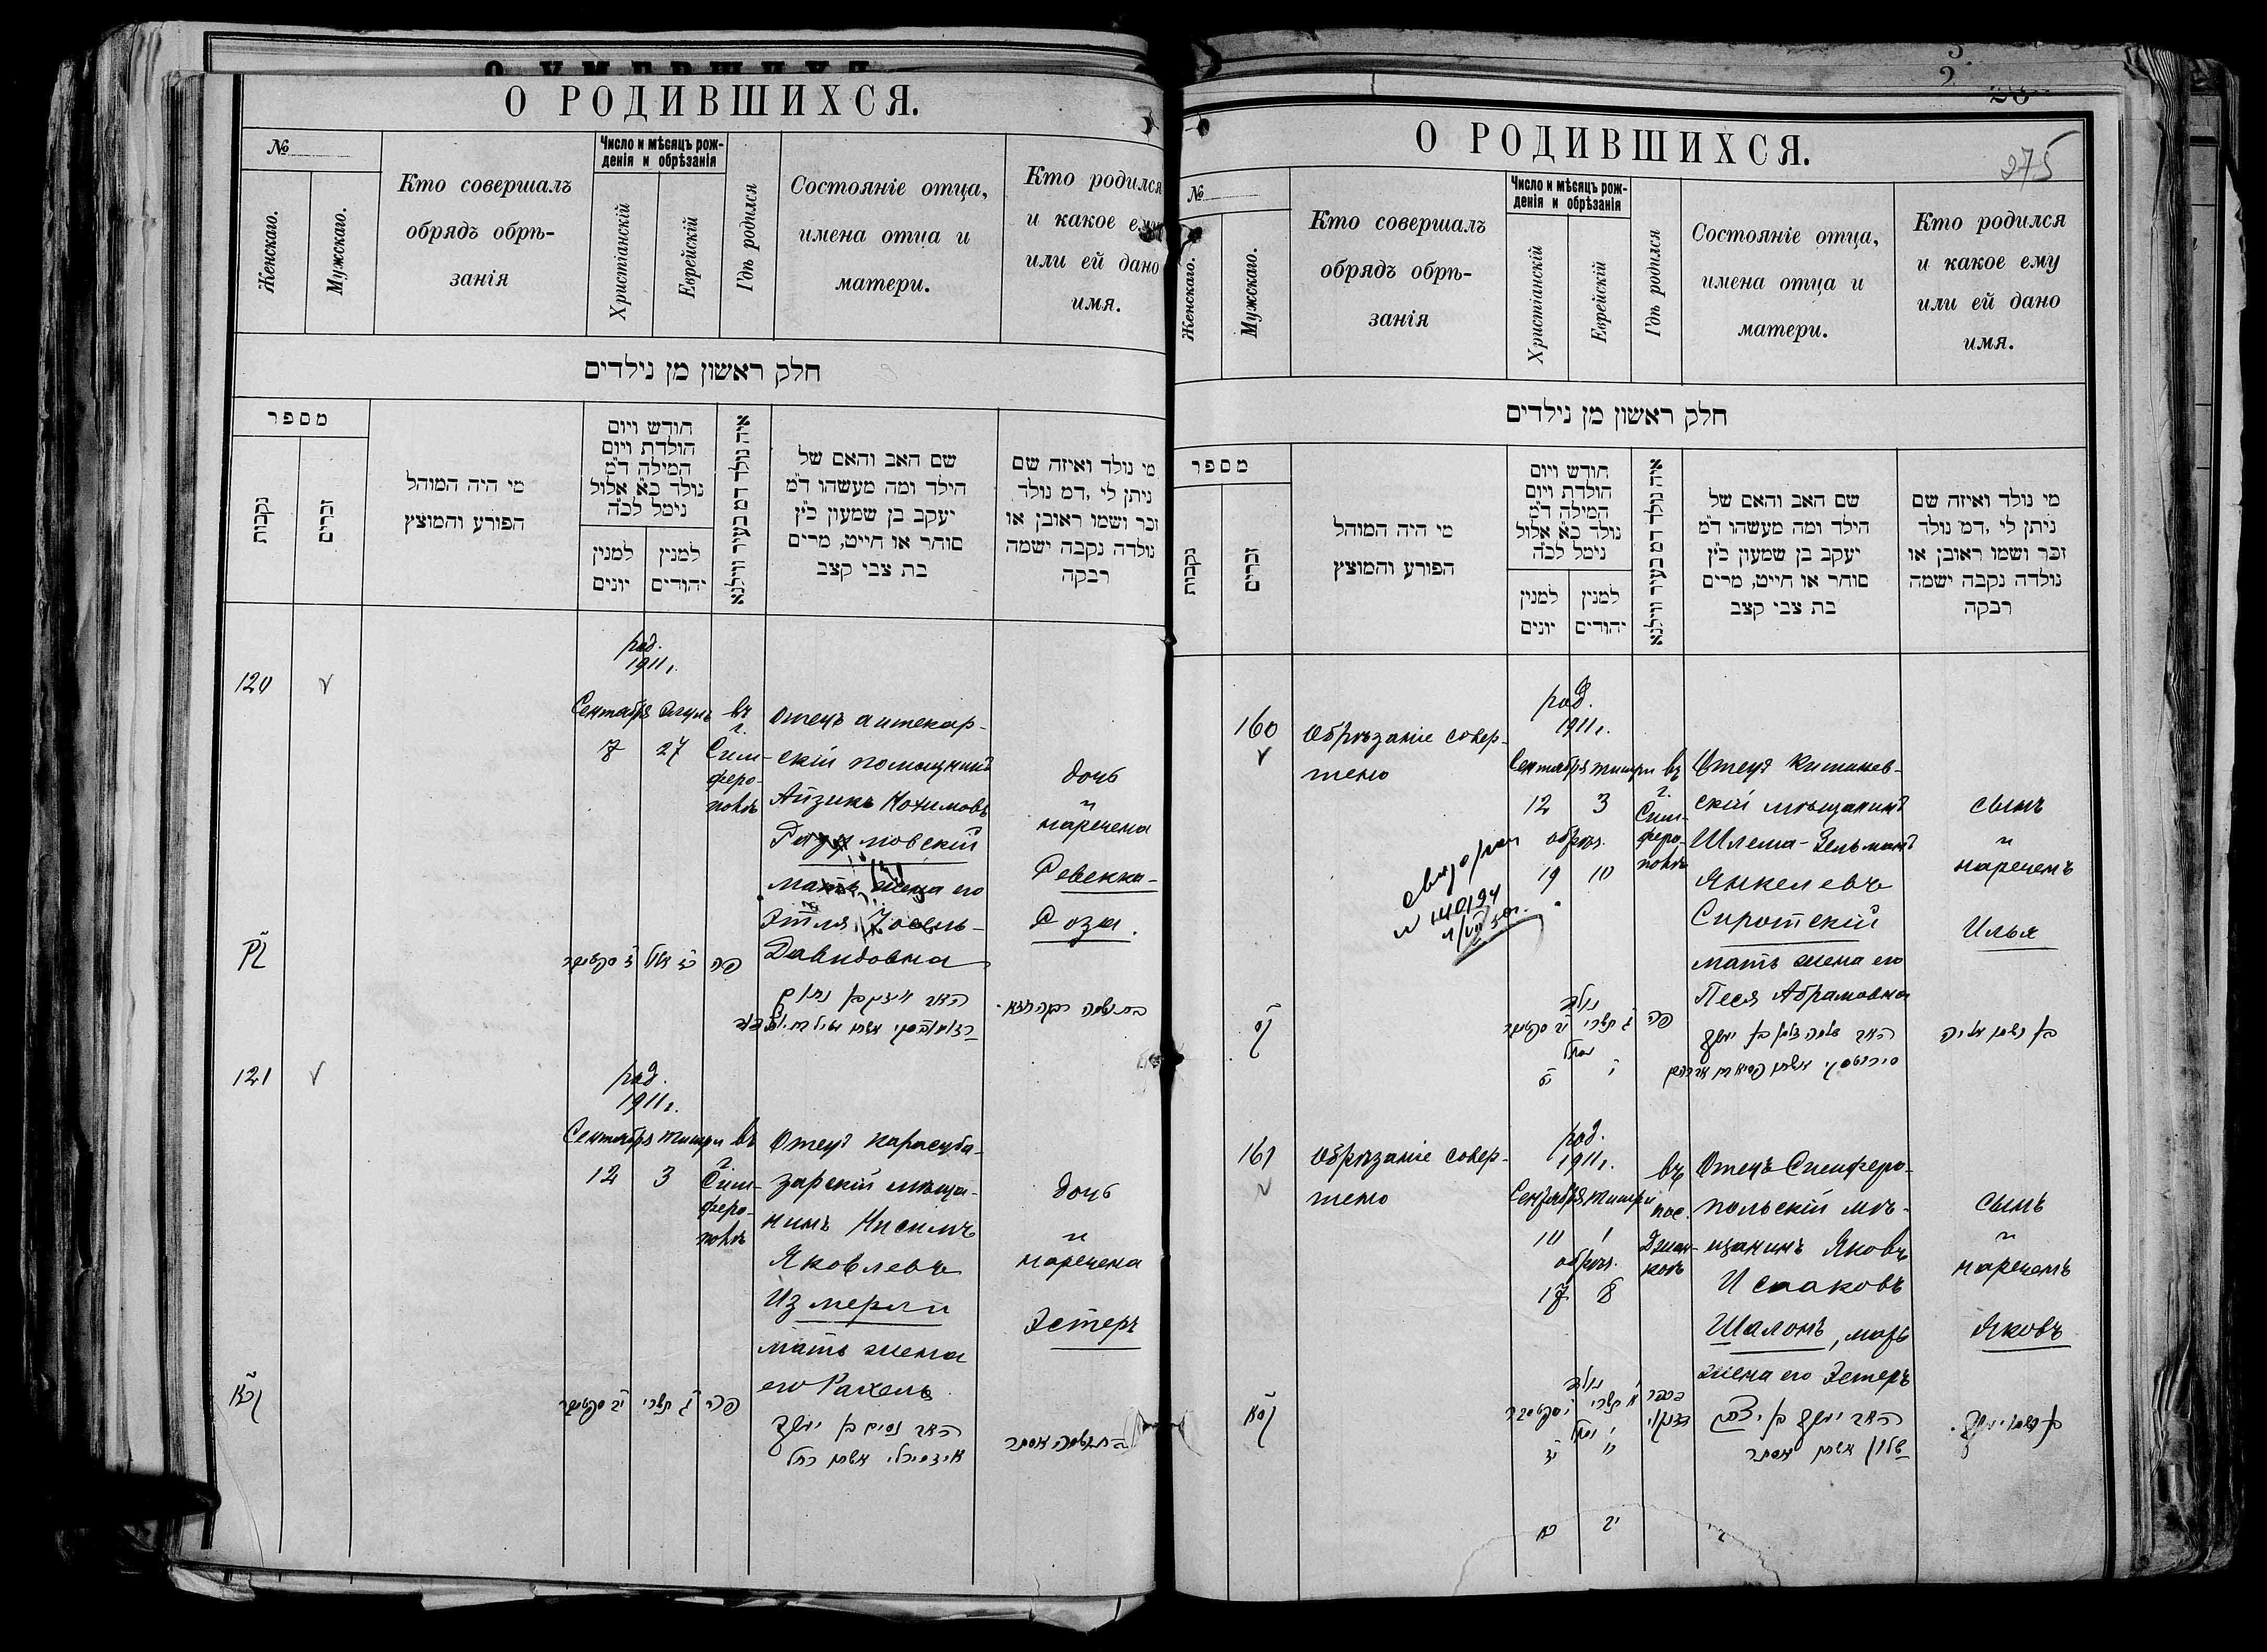 О РОДИВШИХСЯ.
№
Женскаго.
Мужскаго.
Кто совершалъ
обрядъ обрѣ-
занія
Число и мѣсяцъ рож-
денія и обрѣзанія
Христіанскій
Еврейскій
Гдѣ родился
Состояніе отца,
имена отца и
матери.
Кто родился
и какое ему
или ей дано
имя.
חלק ראשון מן נילדים
מספר
נקבות
זכרים
מי היה המוהל
הפורע והמוצץ
חודש ויום
הולדת ויום
המילה ד״מ
נולד כ״א אלול
נימל לכ״ה
למנין
יונים
למנין
יהודים
איה נולד דמ בעיר ווילנא
שם האב והאם של
הילד ומה מעשהו ד״מ
יעקב בן שמעון כ״ץ
סוחר או חייט, מרים
בת צבי קצב
מי נולד ואיזה שם
ניתן לי ,דמ נולד
זכר ושמו ראובן או
נולדה נקבה ישמה
רבקה
120
род.
1911 г.
Сентября
Элулъ
8
27
въ
г.
Сим-
феро-
полѣ
Отецъ аптекар-
скій помощникъ
Айзикъ
мать жена его
Давидовна
дочь
и
наречена
Ревекка-
Роза.
121
род.
1911 г.
Сентября Тишри
12
3
въ
г.
Сим-
феро-
полѣ
Отецъ Карасуба-
зарскій мѣща-
нинъ Нисимъ
Яковлевъ
Измерли
мать жена
его Рахель
дочь
и
наречена
Эстеръ
פה
ג תשרי
האב נסים בן יעקב
אשתו רחל
О РОДИВШИХСЯ.
275
№
Женскаго.
Мужскаго.
Кто совершалъ
обрядъ обрѣ-
занія
Число и мѣсяцъ рож-
денія и обрѣзанія
Христіанскій
Еврейскій
Гдѣ родился
Состояніе отца,
имена отца и
матери.
Кто родился
и какое ему
или ей дано
имя.
חלק ראשון מן נילדים
מספר
נקבות
זכרים
מי היה המוהל
הפורע והמוצץ
חודש ויום
הולדת ויום
המילה ד״מ
נולד כ״א אלול
נימל לכ״ה
למנין
יונים
למנין
יהודים
איה נולד דמ בעיר ווילנא
שם האב והאם של
הילד ומה מעשהו ד״מ
יעקב בן שמעון כ״ץ
סוחר או חייט, מרים
בת צבי קצב
מי נולד ואיזה שם
ניתן לי ,דמ נולד
זכר ושמו ראובן או
נולדה נקבה ישמה
רבקה
160
Обрѣзаніе совер-
шено
род.
1911 г.
Сентября Тишри
12
3
обрѣз.
19
10
въ
г.
Сим-
феро-
полѣ
Отецъ Кишинев-
скій мѣщанинъ
Шлема-Зельманъ
Янкелевъ
Сиротскій
мать жена его
Песя Абрамовна
сынъ
и
нареченъ
Илья
161
Обрѣзаніе совер-
шено
род.
1911 г.
Сентября Тишри
10
1
обрѣз.
17
8
въ
пос.
Джан-
коѣ
Отецъ Симферо-
польскій мѣ-
щанинъ Яковъ
Исааковъ
Шаломъ, мать
жена его Эстеръ
сынъ
и
нареченъ
Яковъ
האב יעקב בן יצחק
שלום אשתו אסתר